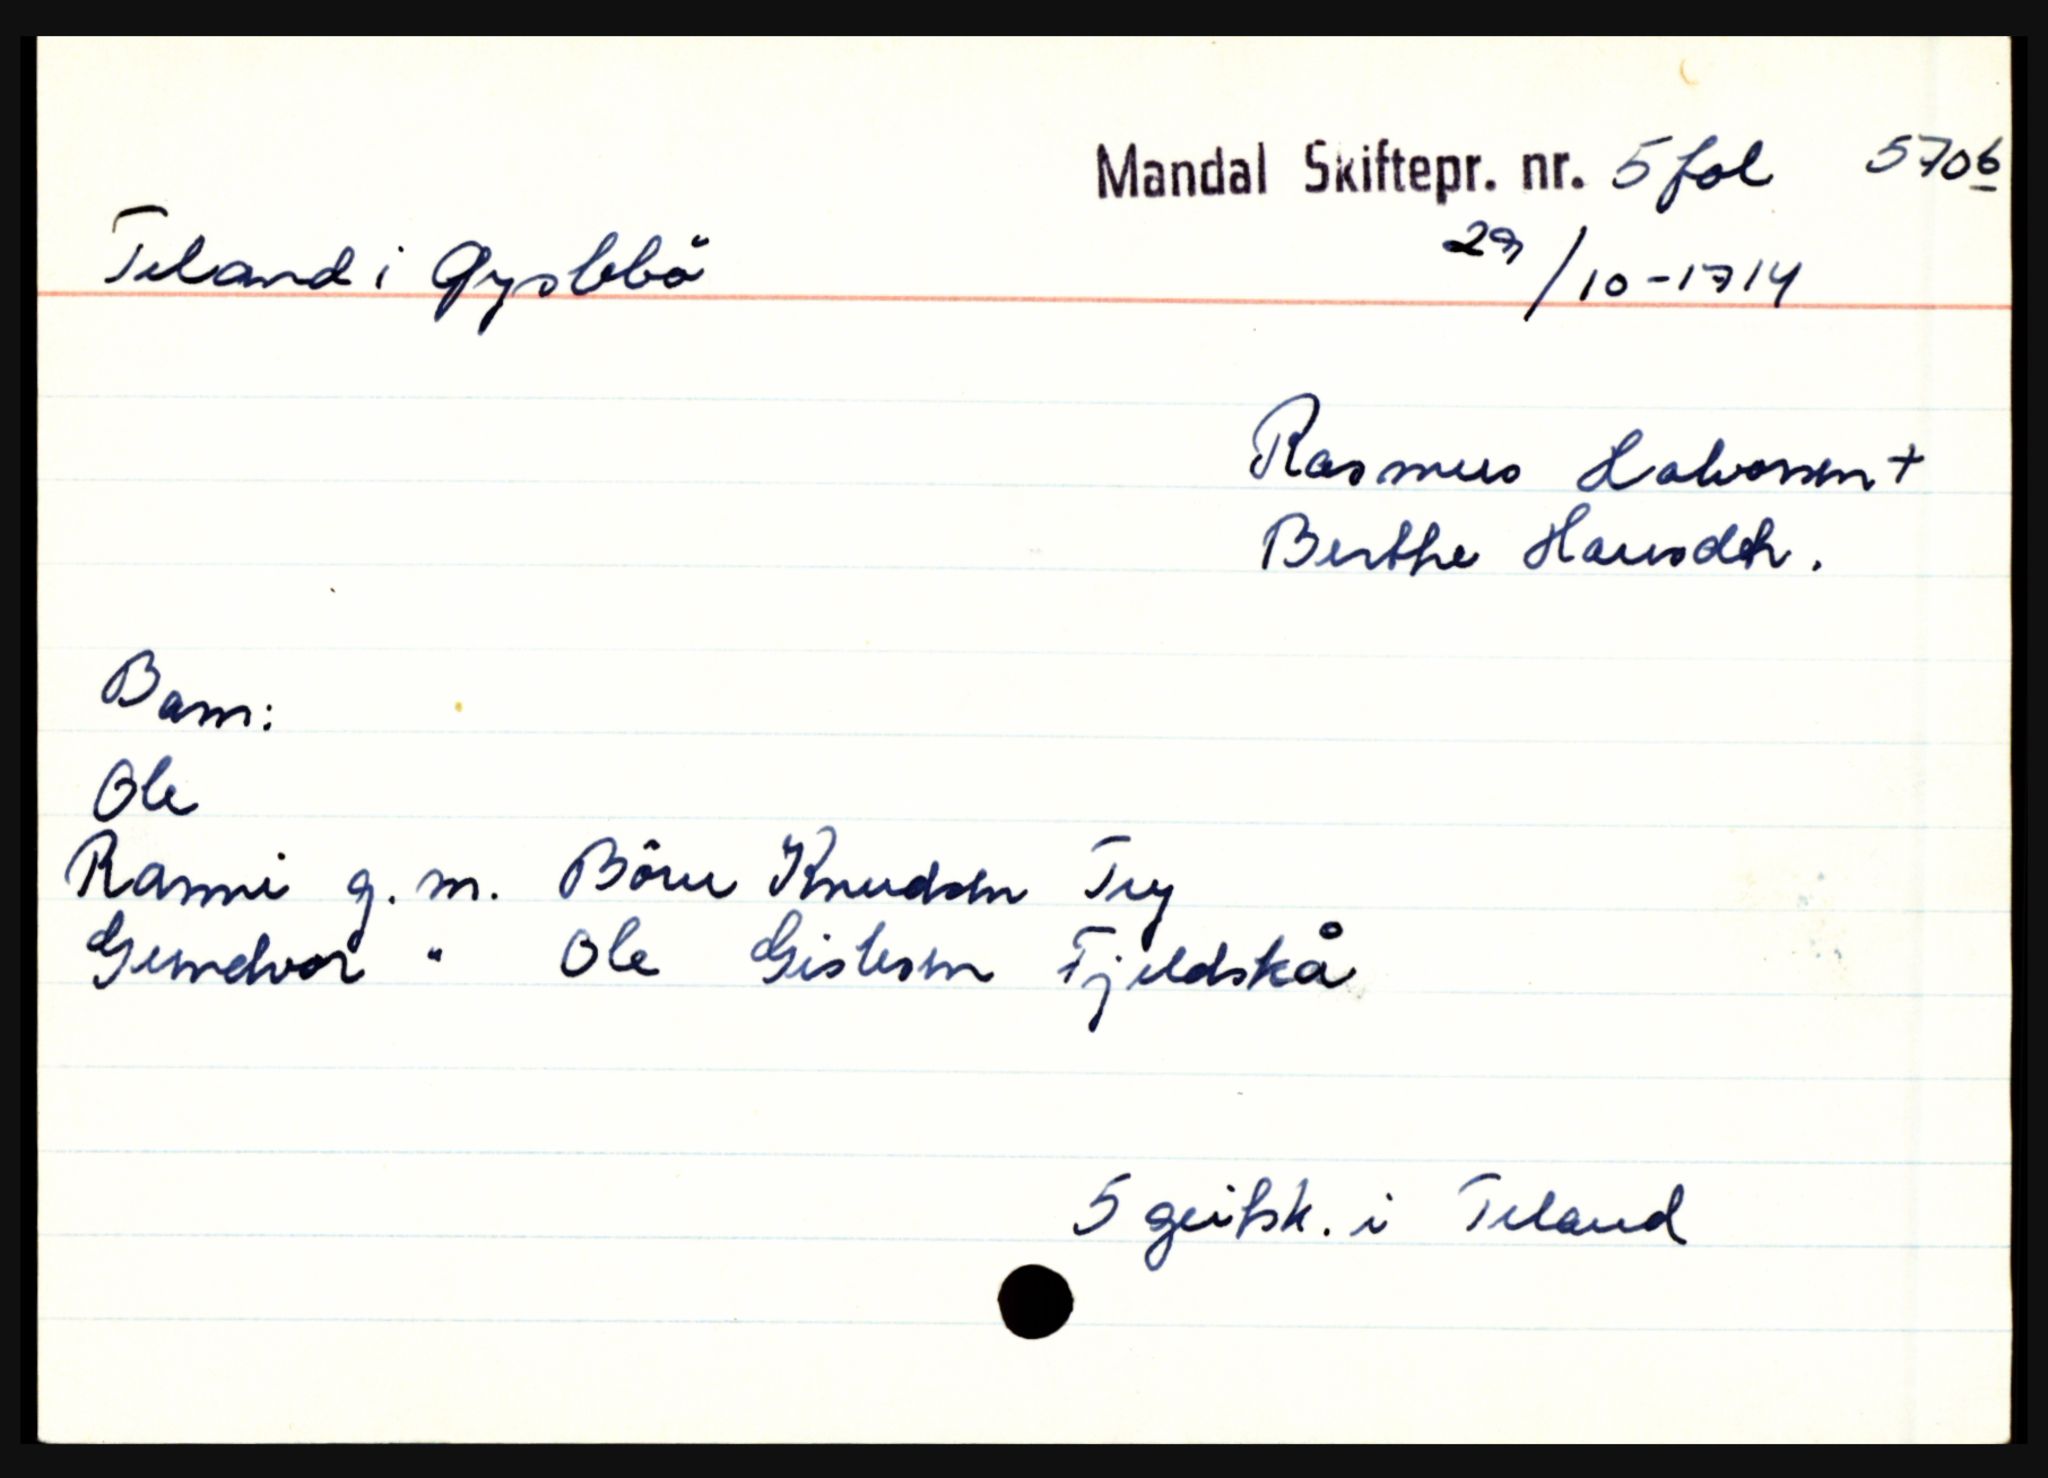 Mandal Skiftepr. nr. 5 fol 570b
Teland i Gyslebö 29/10-1714
Rasmus Halvorsen +
Berthe Hansdtr.
Barn:
Ole
Ranni g. m. Böru Knudsen Try
Gundvor " Ole Gislesen Fjeldskå
5 geitsk. i Teland